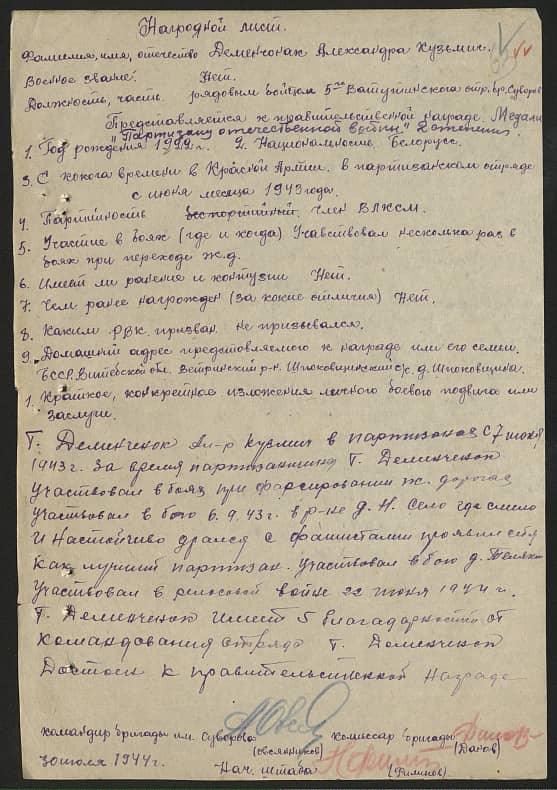 Наградной лист.
Фамилия, имя, отчество Деменчонак Александра Кузьмич.
Военное звание. Нет.
Должность, часть. рядовым бойцом 5го Ватутинского отр. бр. Суворов
Представляется к правительственной награде. Медали
"Партизану отечественной войны" 2 степени.
1. Год рождения 1922 г. 2. Национальность. Белорусс.
3. С какога времени в Красной Армии. в партизанском отряде
с июня месяца 1943 года.
4. Партийность беспортийный член ВЛКСМ.
5. Участие в боях (где и когда) Учавствовал несколька раз в
боях при переходе ж.д.
6. Имеит ли ранение и контузии Нет.
7. Чем ранее награжден (за какие отличия) Нет.
8. Каким РВК. призван. не призывался.
9. Домашний адрес представляемого к награде или его семьи.
БССР, Витебской обл. Ветринский р-н. с/с. д.
1. Краткое, конкретное изложения личного боевого подвига или
заслуги.
Т. Деменченок Ал-р Кузмич в партизанах с 7 июня
1943 г. За время партизанщины Т. Деменченок
Участвовал в боях при фарсировании ж. дорогах
Участвовал в бою 6.9.43 г. в р-не д. Н. Село где смело
И настойчиво дрался с фашистами проявил себя
Как лучший партизан. Участвовал в бою д.
Участвовал в релсовой войне 22 июня 1944 г.
Т. Деменченок имеит 5 благадарностий от
Командования отряда Т. Деменченок
Достоин к правительственной награде
командир бригады им. Суворова комиссар бригады
(Овсянников) (Данов)
30 июля 1944 г. Нач. штаба (Филипов)